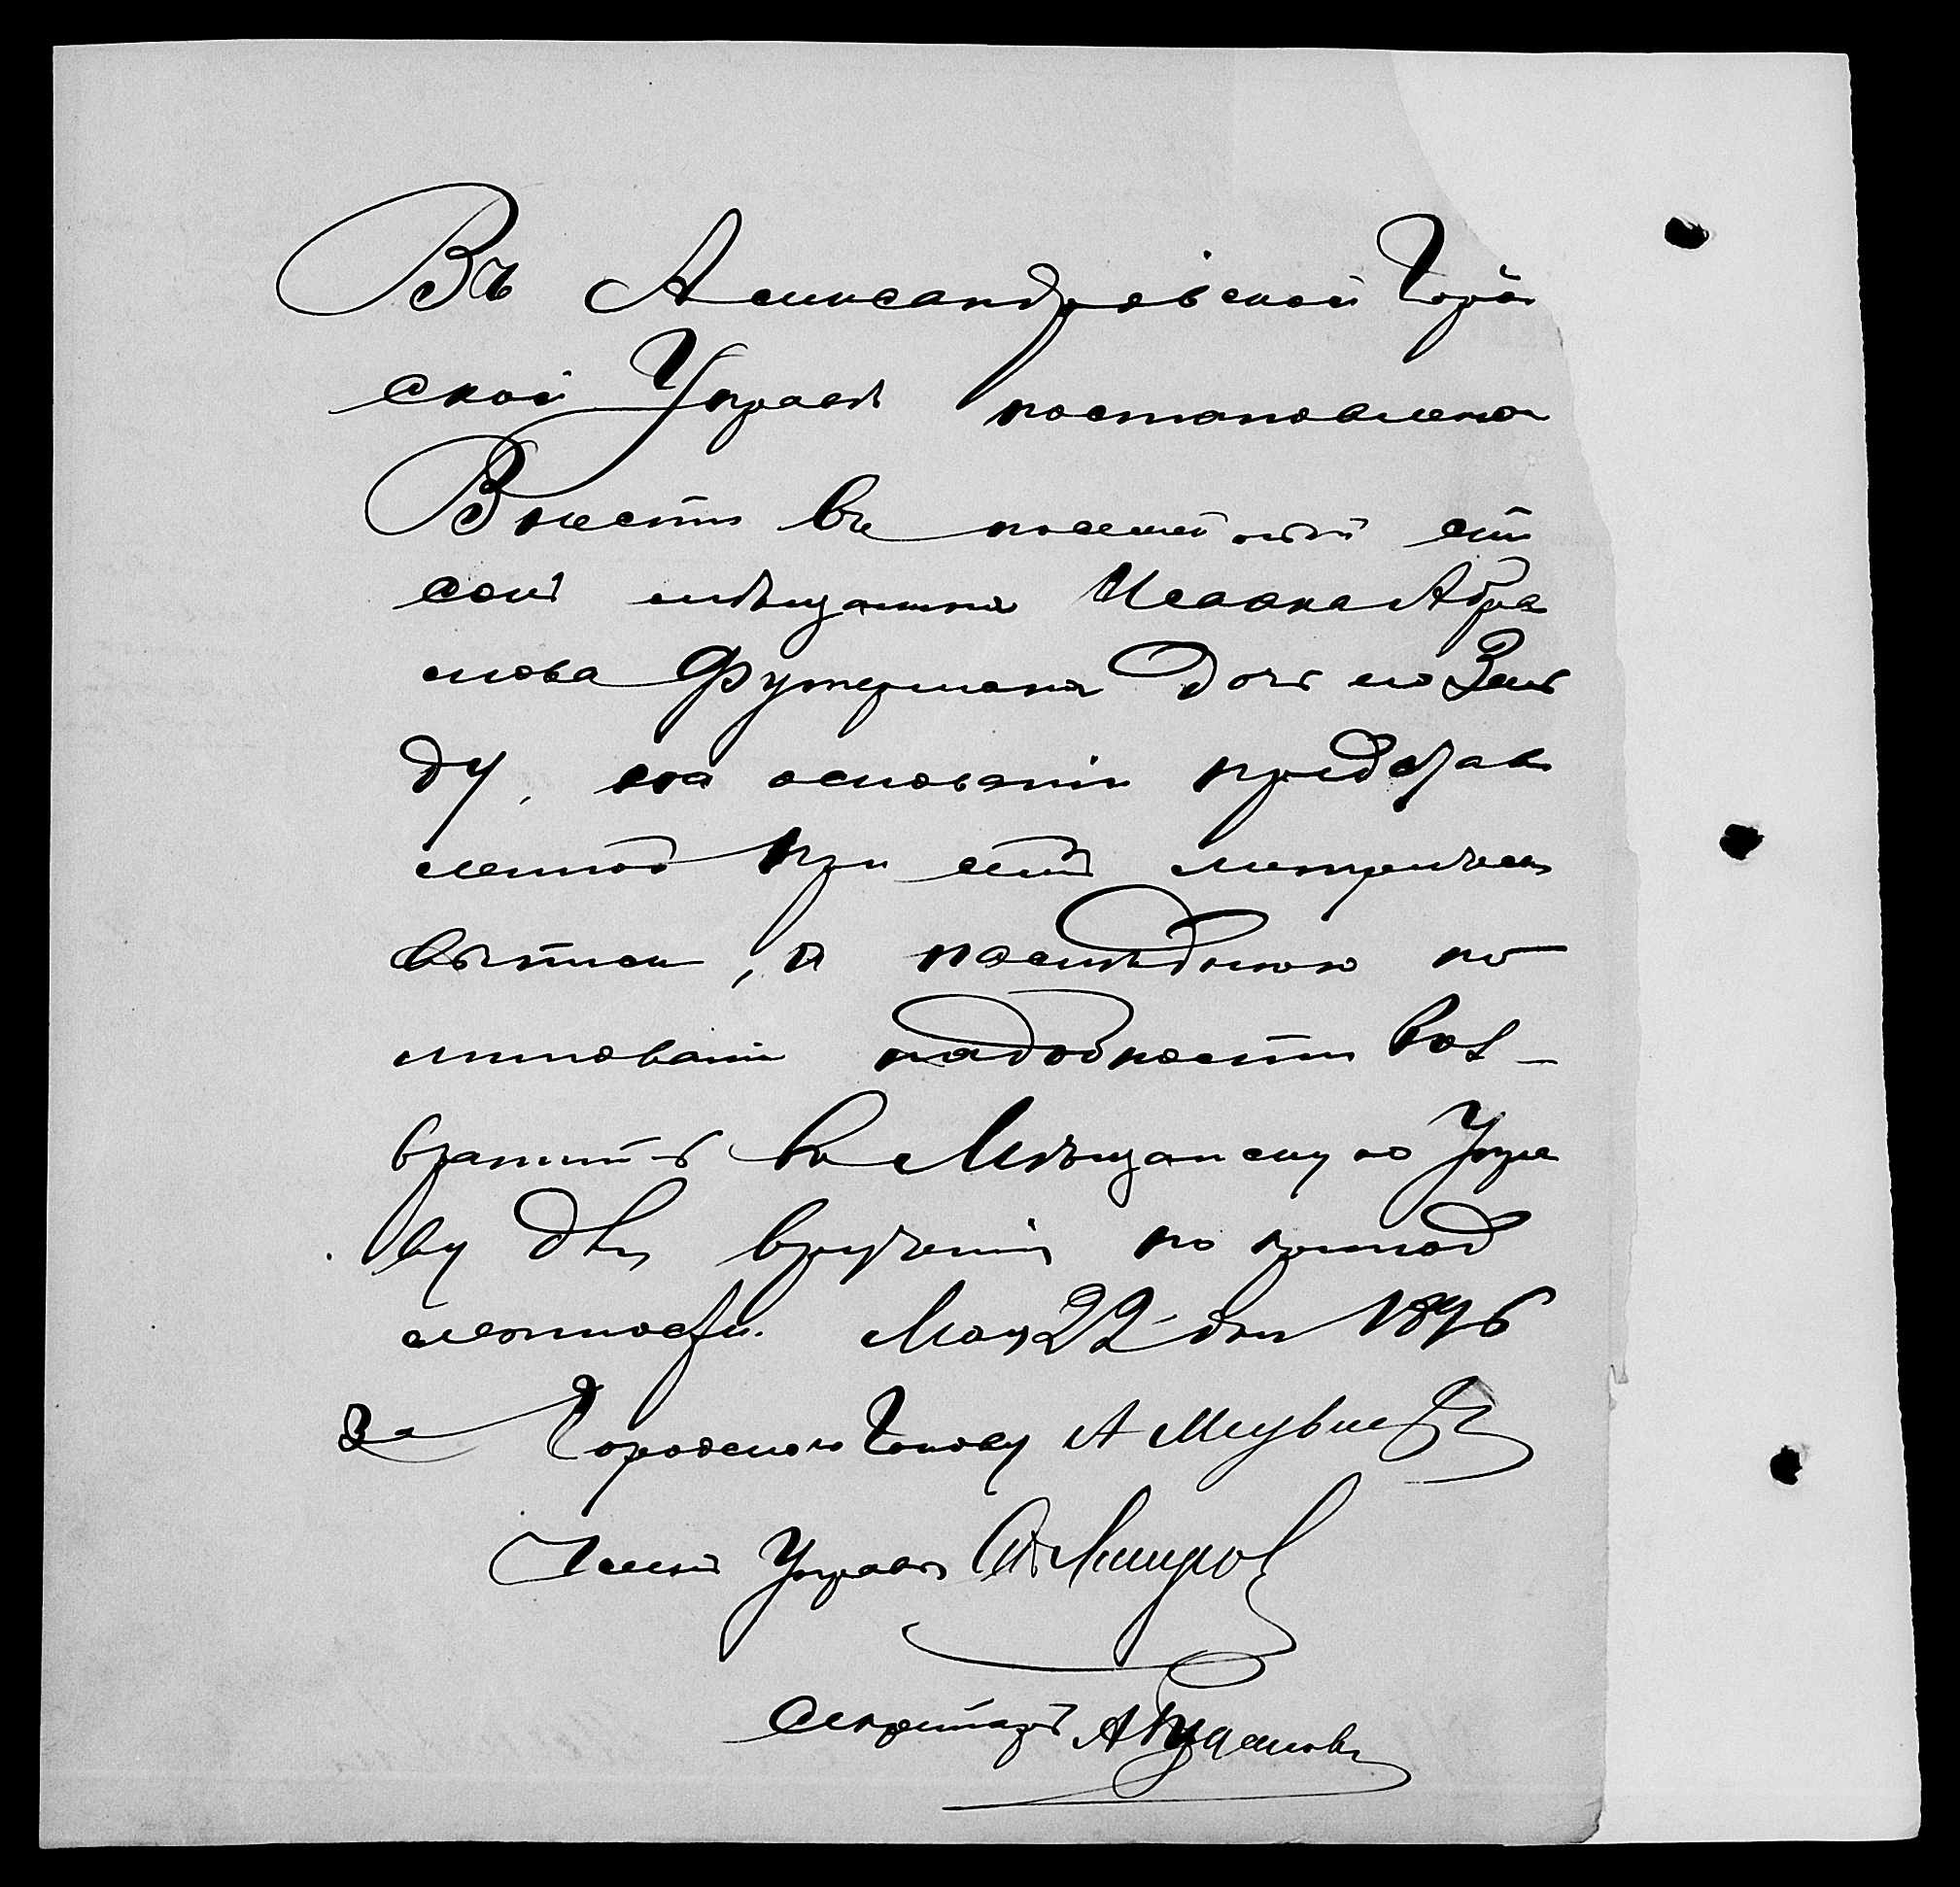 Въ Александровской Город
ской Управѣ постановлено
Внести въ посемейный спи
сокъ мѣщанина Исаака Абра
мова Футермана дочь его Зель
ду, на основаніи представ
ленной при семъ метрическ
выписи, а послѣднюю по
минованіи надобности воз-
вратить въ Мѣщанскую Упра
ву для врученія по принад
лежности. Мая 22 дня 1896
За Городского Голову А
Членъ Управы
Секретарь А